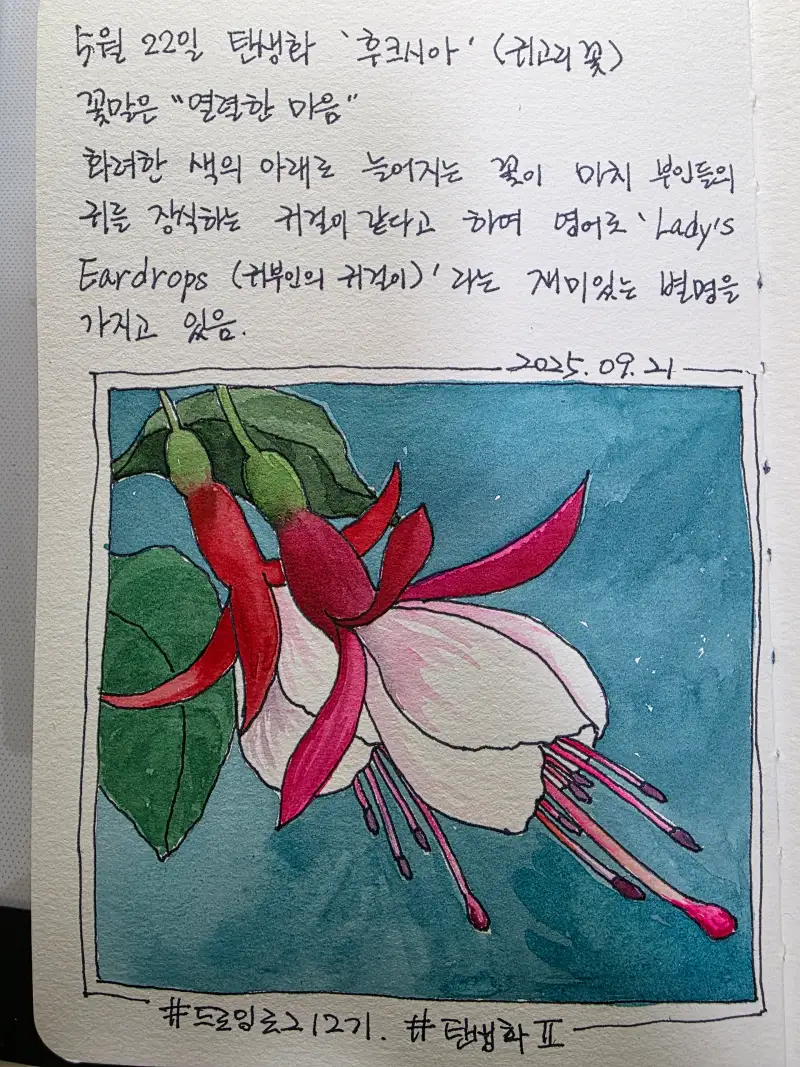 5월 22일 탄생화 '후크시아' (귀고리꽃)
꽃말은 "열렬한 마음"
화려한 색의 아래로 늘어지는 꽃이 마치 부인들의
귀를 장식하는 귀걸이 같다고 하며 영어로 'Lady's
Eardrops (귀부인의 귀걸이)'라는 재미있는 별명을
가지고 있음.
2025.09.21
#드로잉로그12기. #탄생화Ⅱ